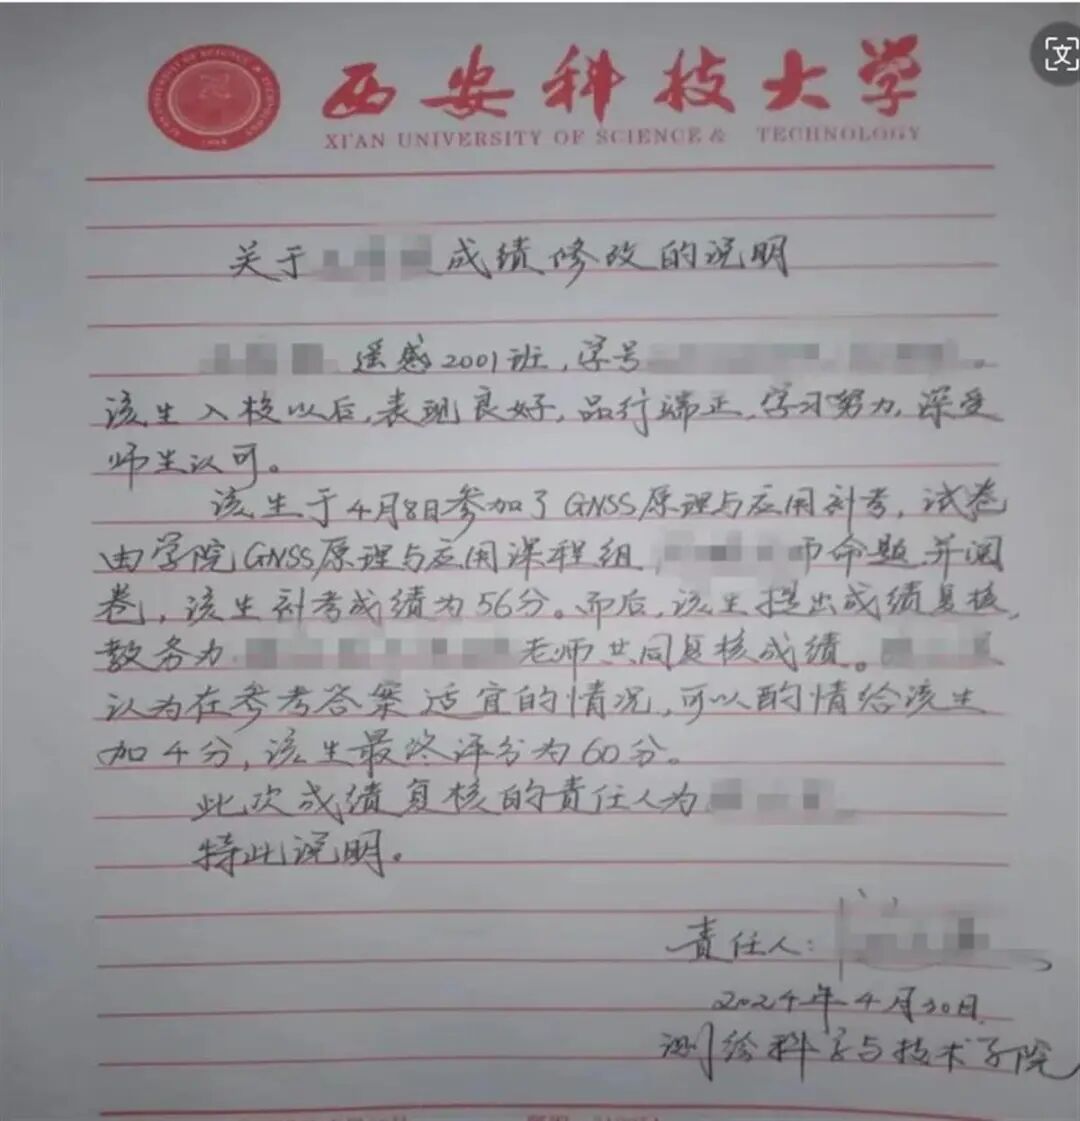 西安科技大学
XI'AN UNIVERSITY OF SCIENCE & TECHNOLOGY
关于 成绩修改的说明
遥感2001班,学号
该生入校以后,表现良好,品行端正,学习努力,深受
师生认可。
该生于4月8日参加了GNSS原理与应用补考,试卷
由学院GNSS原理与应用课程组 师命题并阅
卷,该生补考成绩为56分。而后,该生提出成绩复核,
教务办 老师共同复核成绩。
认为在参考答案适宜的情况,可以酌情给该生
加4分,该生最终评分为60分。
此次成绩复核的责任人为
特此说明。
责任人:
2024年4月30日
测绘科学与技术学院